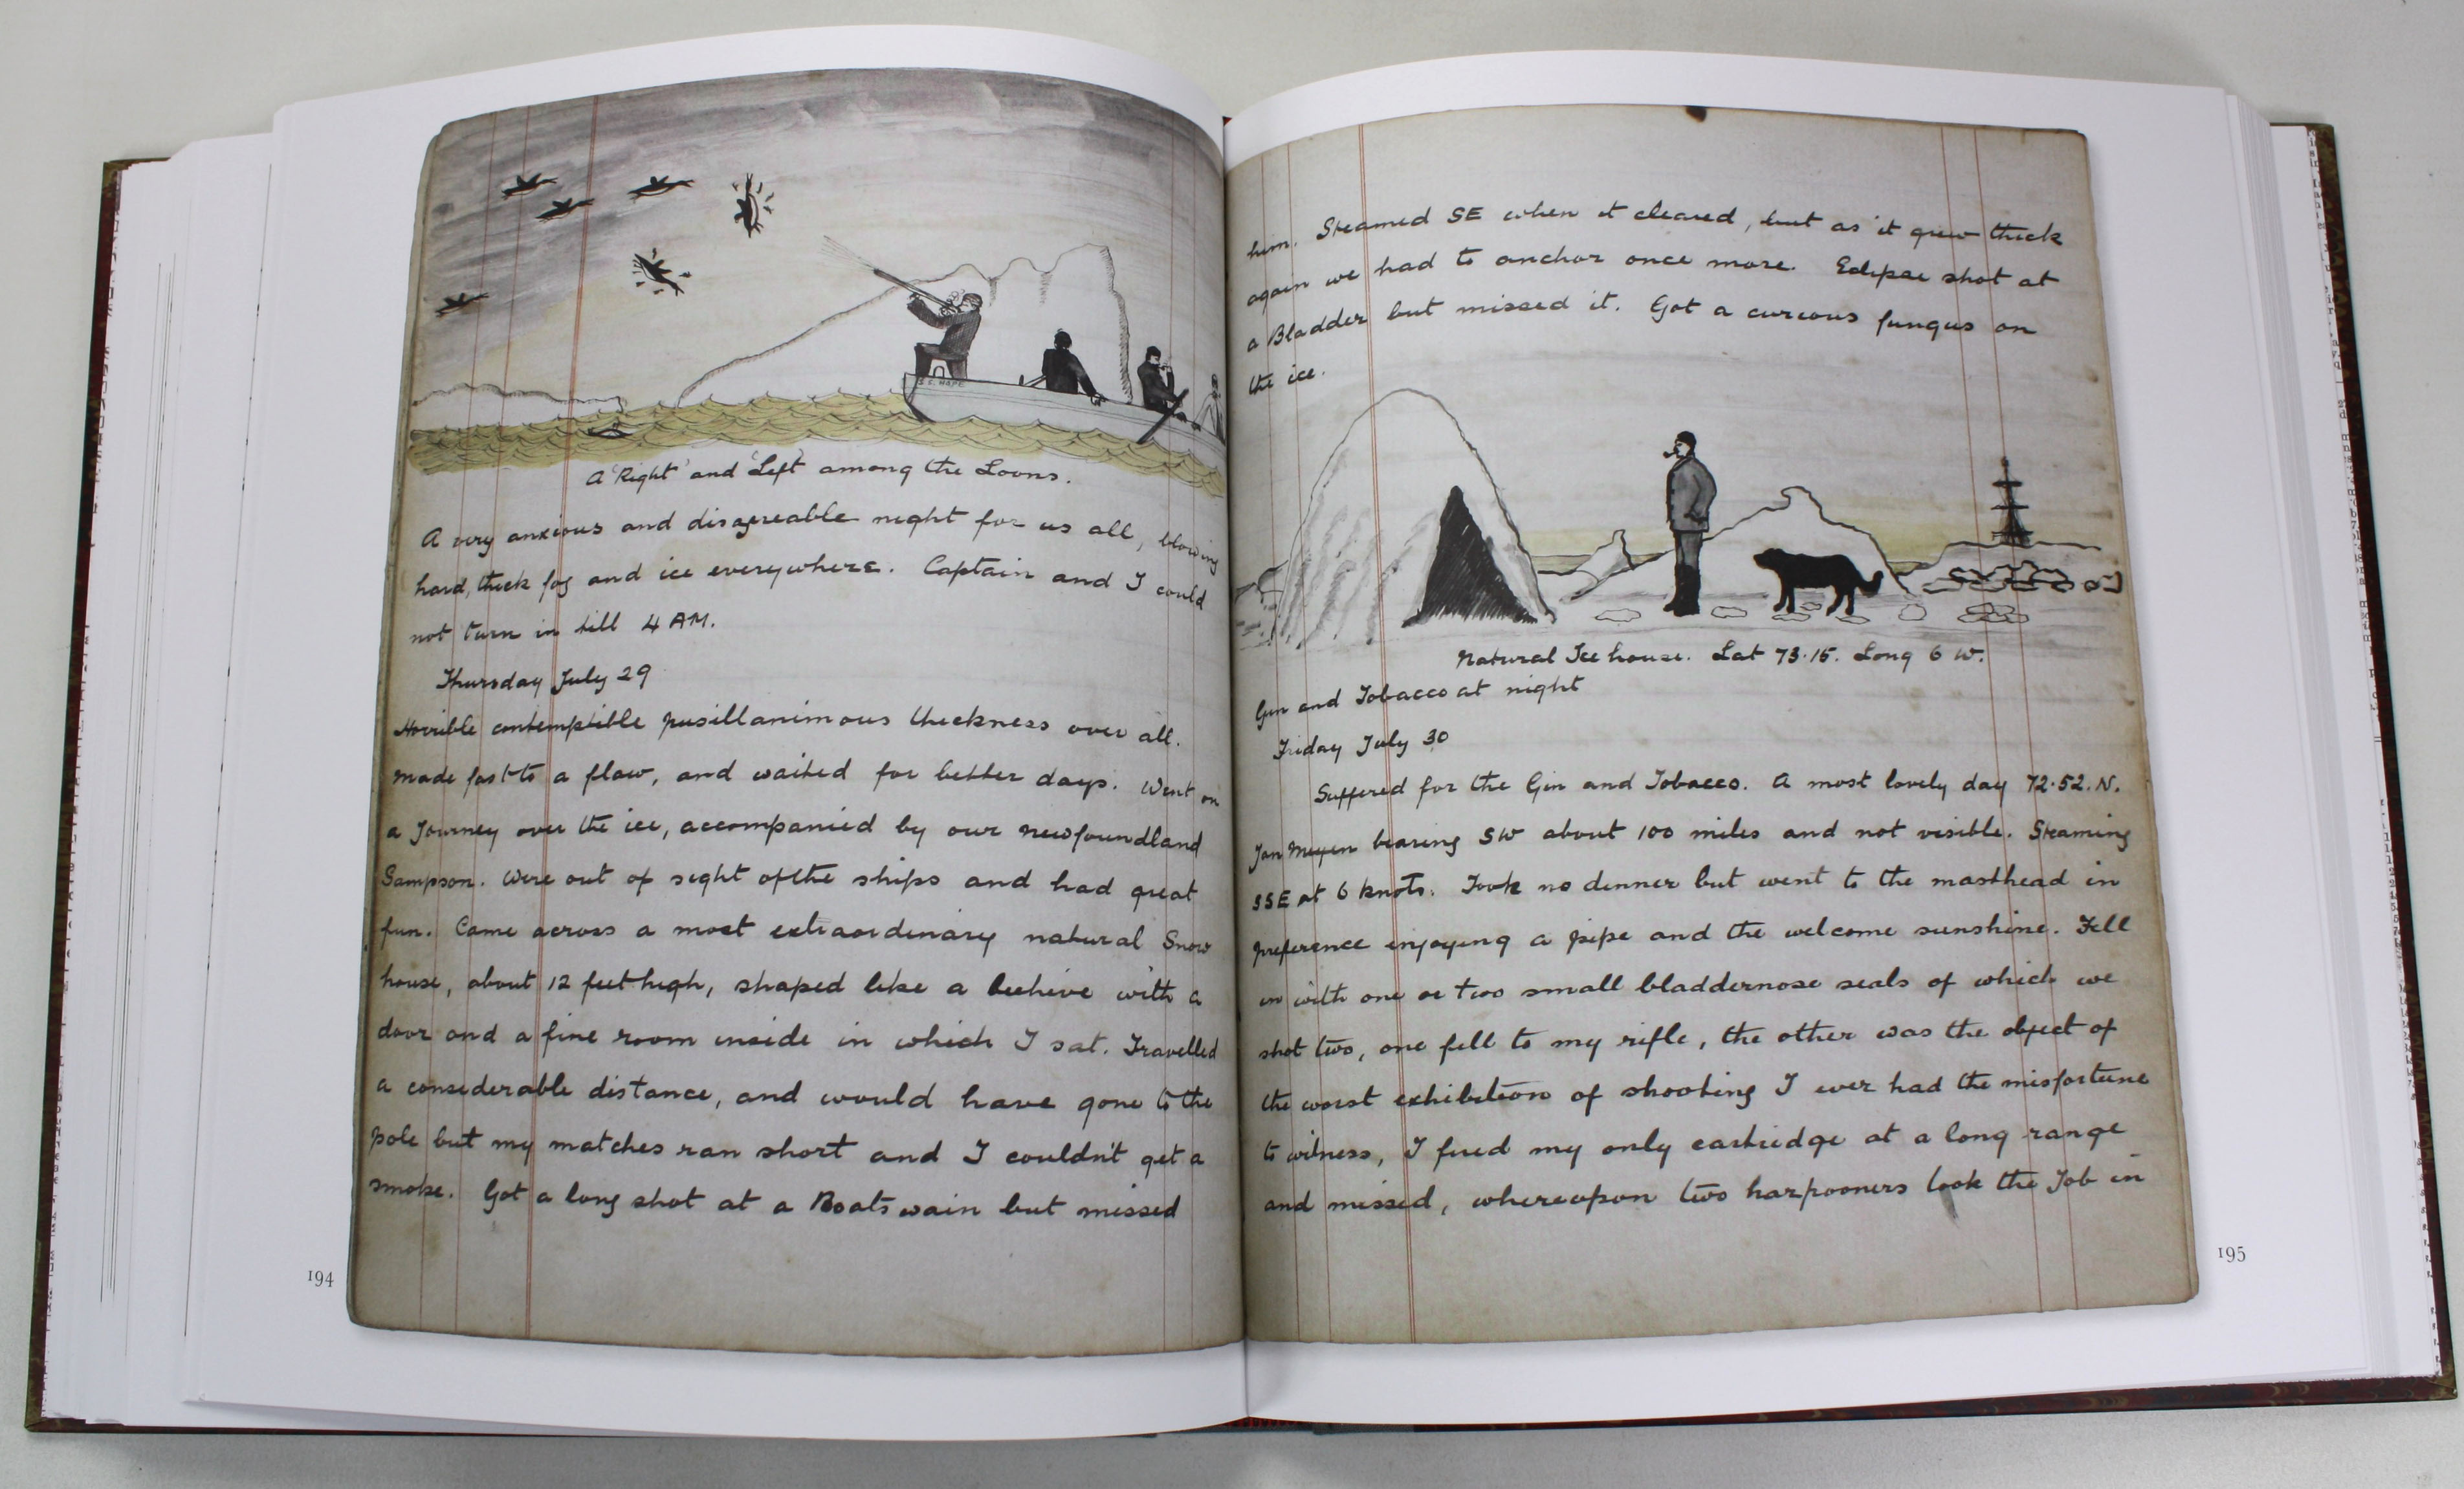 S.S. HOPE
A 'Right' and 'Left' among the Loons.
A very anxious and disagreeable night for us all, blowing
hard, thick fog and ice everywhere. Captain and I could
not turn in till 4 AM.
Thursday July 29
Horrible contemptible pusillanimous thickness over all.
Made fast to a flaw, and waited for better days. Went on
a Journey over the ice, accompanied by our newfoundland
Sampson. Were out of sight of the ships and had great
fun. Came across a most extraordinary natural Snow
house, about 12 feet high, shaped like a beehive with a
door and a fine room inside in which I sat. Travelled
a considerable distance, and would have gone to the
pole but my matches ran short and I couldn't get a
smoke. Got a long shot at a Boatswain but missed
194
him. Steamed SE when it cleared, but as it grew thick
again we had to anchor once more. Eclipse shot at
a Bladder but missed it. Got a curious fungus on
the ice.
Natural Ice house. Lat 73.15. Long 6 W.
Gin and Tobacco at night
Friday July 30
Suffered for the Gin and Tobacco. A most lovely day 72.52.N.
Jan Meyen bearing SW about 100 miles and not visible. Steaming
SSE at 6 knots. Took no dinner but went to the masthead in
preference enjoying a pipe and the welcome sunshine. Fell
in with one or two small bladdernose seals of which we
shot two, one fell to my rifle, the other was the object of
the worst exhibition of shooting I ever had the misfortune
to witness, I fired my only cartridge at a long range
and missed, whereupon two harpooners took the Job in
195